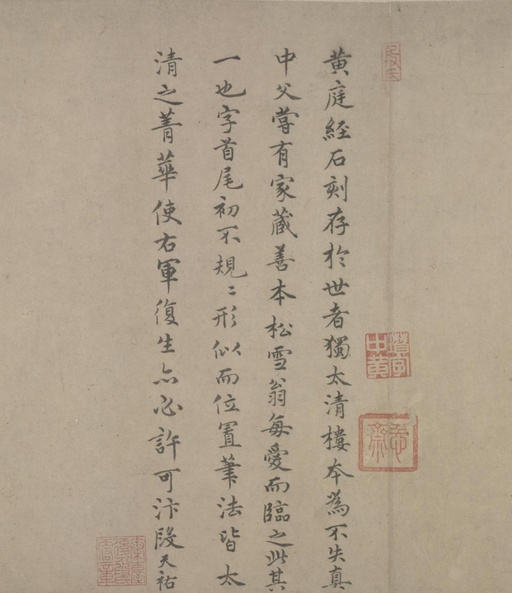 黄庭經石刻存於世者獨太清樓本為不失真
中父嘗有家藏善本松雪翁每愛而臨之此其
一也字首尾初不規〻形似而位置筆法皆太
清之菁華使右軍復生亦必許可汴段天祐